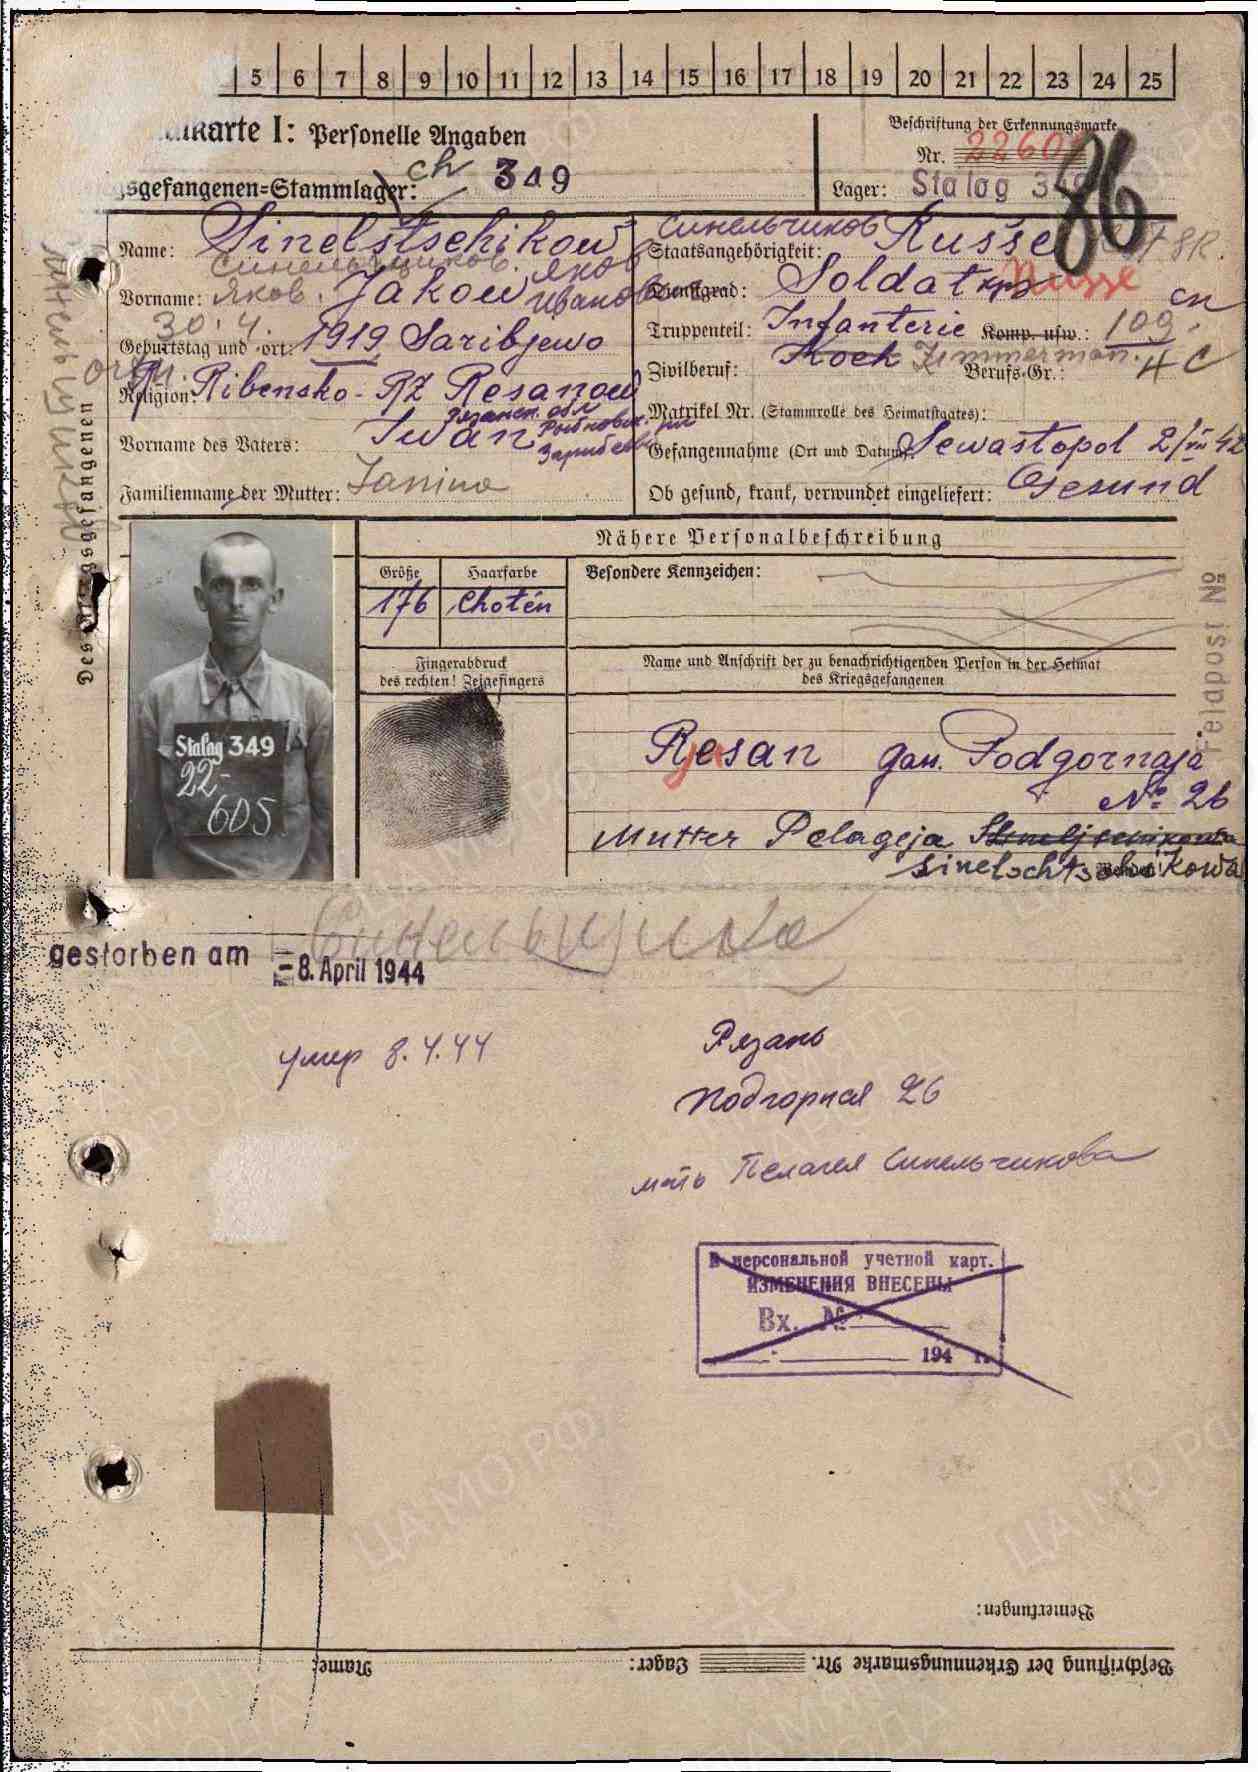 5 6 7 8 9 10 11 12 13 14 15 16 17 18 19 20 21 22 23 24 25
karte I: Personelle Angaben
Beschriftung der Erkennungsmarke
Nr. 22605
gsgefangenen=Stammlager: ch 349
Lager: Stalag 349
86
Name: Sinelstschikow
Синельщиков
Синельчиков
Staatsangehörigkeit: Russe
Vorname: Яков. Jakow
Яков Иванов
Dienstgrad: Soldat
Russe
Geburtstag und =ort: 30.4. 1919 Saribjewo
Truppenteil: Infanterie Komp. usw.: 109.
Religion: Ribensko - RZ Resanow
Zivilberuf: Koch Zimmerman. Berufs-Gr.: 4 C
Рязанск. обл
Зарибьево
Matrikel Nr. (Stammrolle des Heimatstaates):
Vorname des Vaters: Iwan
Gefangennahme (Ort und Datum): Sewastopol 2/VII 42
Familienname der Mutter: Janina
Ob gesund, krank, verwundet eingeliefert: Gesund
Des Kriegsgefangenen
Nähere Personalbeschreibung
Größe
Haarfarbe
Besondere Kennzeichen:
176
Chotén
Fingerabdruck
des rechten! Zeigefingers
Name und Anschrift der zu benachrichtigenden Person in der Heimat
des Kriegsgefangenen
Feldpost No
Stalag 349
22-
605
Resan gan. Podgornaja
No 26
Mutter Pelageja
sinelschtschikowa
Синельщиков
gestorben am - 8. April 1944
умер 8.4.44
Рязань
Подгорная 26
мать Пелагея Синельчикова
В персональной учетной карт.
ИЗМЕНЕНИЯ ВНЕСЕНЫ
Вх. №
194 г.
ЦАМО РФ
Bemerkungen:
Name:
Lager:
Beschriftung der Erkennungsmarke Nr.